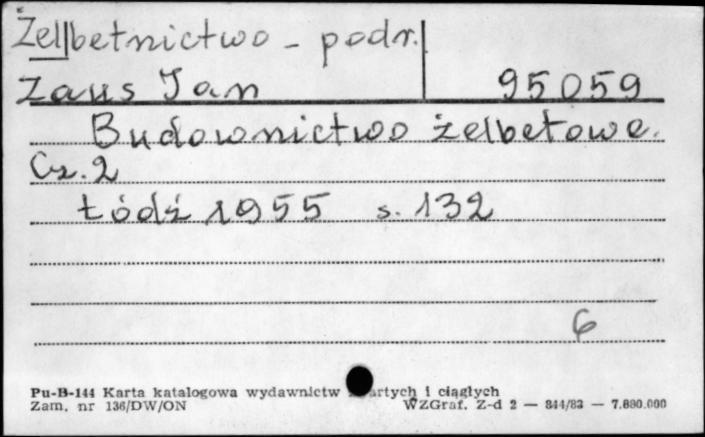 Żelbetnictwo - podr.
Zaus Jan 95059
Budownictwo żelbetowe.
Cz. 2
Łódź 1955 s. 132
6
Pu-B-144 Karta katalogowa wydawnictw artych i ciągłych
Zam. nr 136/DW/ON WZGraf. Z-d 2 — 344/83 — 7.880.000